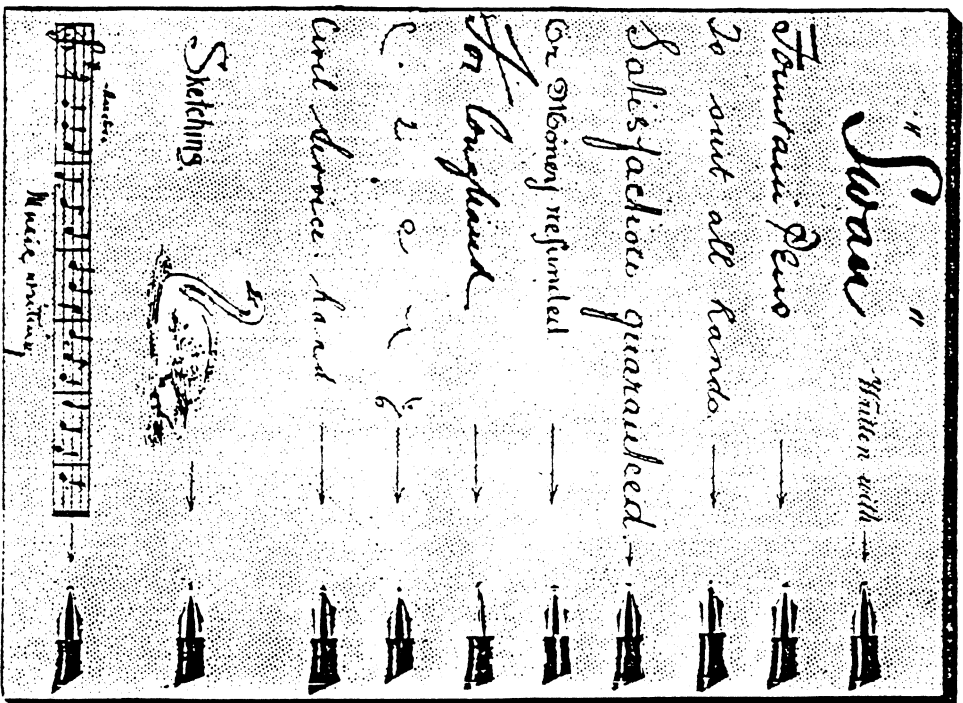 "Swan" Written with
Fountain Pens
To suit all hands
Satisfaction guaranteed.
Or Money refunded
For
Civil Service hand
Sketching.
Music writing